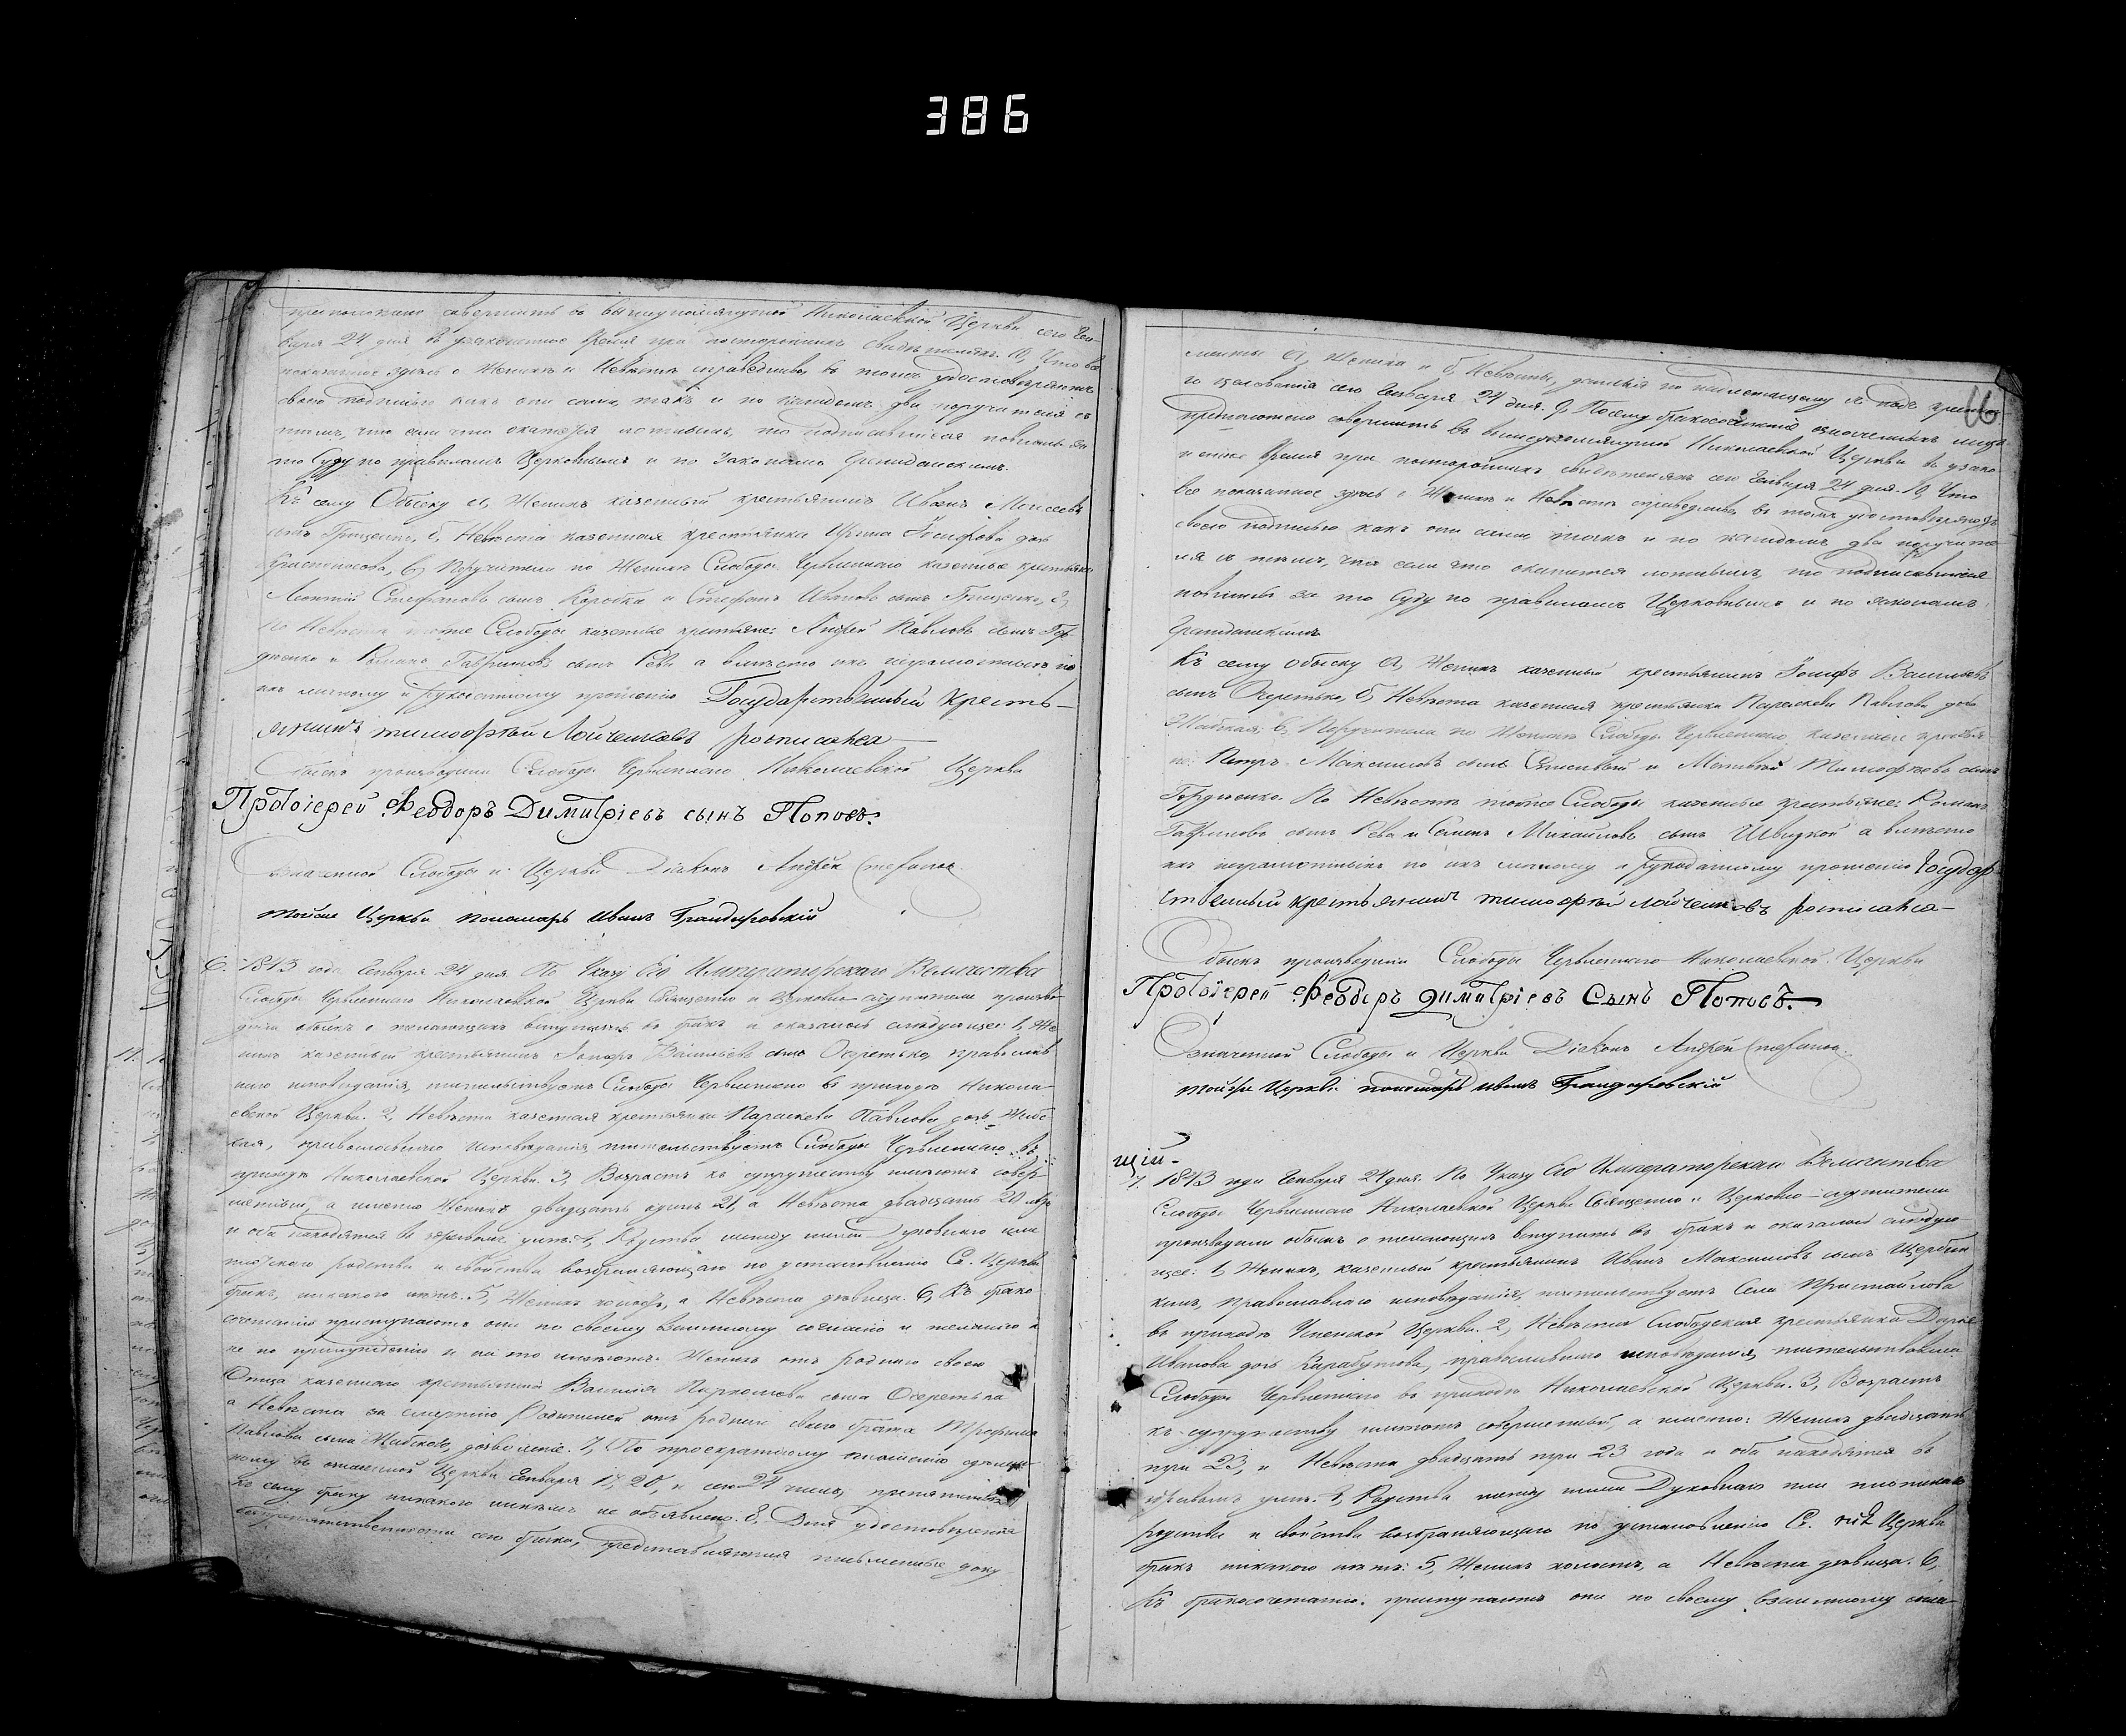 386
предположено совершить въ вышеупомянутой Николаевской Церкви сего Ген-
варя 24 дня въ узаконенное время при постороннихъ свидѣтеляхъ. 10, Что все
показанное здѣсь о Женихѣ и Невѣстѣ справедливо, въ томъ удостовѣряютъ
своею подписью какъ они сами, такъ и по каждомъ два поручителя съ
тѣмъ, что если что окажется ложнымъ, то подписавшіеся повинны за
то Суду по правиламъ Церковнымъ и по Законамъ Гражданскимъ.
Къ сему Обыску а, Женихъ казенный крестьянинъ Иванъ Моисеевъ
сынъ Грищенко, б, Невѣста казенная крестьянка Ирина Іосифова дочь
в, Поручители по Женихѣ Слободы Червленаго казенные крестьяне
Леонтій Стефановъ сынъ Коробка и Стефанъ Ивановъ сынъ Грищенко, г,
По Невѣстѣ тойже Слободы казенные крестьяне: Андрей Павловъ сынъ Гор-
диенко и Романъ Гавриловъ сынъ Рева а вмѣсто ихъ неграмотныхъ по
ихъ личному и рукоданному прошенію Государственный Кресть-
янинъ тимофѣй Лойченковъ росписался
Обыскъ производили Слободы Червленаго Николаевской Церкви
Протоіерей Феодоръ Димитріевъ сынъ Поповъ.
Означенной Слободы и Церкви Діаконъ Андрей Стефанов
тойже Церкви пономарь Иванъ
6. 1843 года Генваря 24 дня. По Указу Его Императорскаго Величества
Слободы Червленаго Николаевской Церкви Священно и Церковно-служители произво-
дили обыскъ о желающихъ вступить въ бракъ и оказалось слѣдующее: 1, Же-
нихъ казенный крестьянинъ Іосифъ Васильевъ сынъ Очеретько, православ-
наго исповѣданія, жительствуетъ Слободы Червленаго въ приходѣ Никола-
евской Церкви. 2, Невѣста казенная крестьянка Параскева Павлова дочь Жаб-
ская, православнаго исповѣданія жительствуетъ Слободы Червленаго въ
приходѣ Николаевской Церкви. 3, Возрастъ къ супружеству имѣютъ совер-
шенный, а именно Женихъ двадцать одинъ 21, а Невѣста двадцать 20 лѣтъ
и оба находятся въ здравомъ умѣ. 4, Родства между ними Духовнаго или
плотскаго родства и свойства возбраняющаго по установленію Св. Церкви
бракъ, никакого нѣтъ. 5, Женихъ холостъ, а Невѣста дѣвица. 6, Къ брако
сочетанію приступаютъ они по своему взаимному согласію и желанію а
не по принужденію и на то имѣютъ Женихъ отъ роднаго своего
Отца казеннаго крестьянина Василія сына Очеретька
а Невѣста за смертію Родителей отъ роднаго своего брата Трофима
Павлова сына Жабскаго, дозволеніе. 7, По троекратному оглашенію сдѣлан-
ному въ означенной Церкви Генваря 17, 20, и сего 24 чиселъ, препятствія
къ сему браку никакого никѣмъ не объявлено. 8, Для удостовѣренія
безпрепятственности сего брака, представляются письменные доку
16
менты а, Жениха и б, Невѣсты, данныя по надлежащему и подъ крестна
го цѣлованія сего Генваря 24 дня. 9, Посему бракосочетаніе означенныхъ лицъ
предположено совершить въ вышеупомянутой Николаевской Церкви въ узако-
ненное время при постороннихъ свидѣтеляхъ сего Генваря 24 дня. 10, Что
все показанное здѣсь о Женихѣ и Невѣстѣ справедливо, въ томъ удостовѣряютъ
своею подписью какъ они сами такъ и по каждомъ два поручите-
ля съ тѣмъ, что если что окажется ложнымъ, то подписавшіеся
повинны за то Суду по правиламъ Церковнымъ и по законамъ
Гражданскимъ
Къ сему обыску а, Женихъ казенный крестьянинъ Іосифъ Васильевъ
сынъ Очеретько, б, Невѣста казенная крестьянка Параскева Павлова дочь
Жабская, в, Поручители по Женихѣ Слободы Червленаго казенные крестья-
не: Петръ Максимовъ сынъ и Матвѣй Тимофѣевъ сынъ
Гордиенко. По Невѣстѣ тойже Слободы казенные крестьяне: Романъ
Гавриловъ сынъ Рева и Семенъ Михайловъ сынъ Швидкой а вмѣсто
ихъ неграмотныхъ по ихъ личному и рукоданному прошенію Государ
ственный крестьянинъ тимофѣй лойченковъ росписался
Обыскъ производили Слободы Червленаго Николаевской Церкви
Протоіерей Феодоръ Димитріевъ Сынъ Поповъ.
Означенной Слободы и Церкви Діаконъ Андрей Стефанов
тойже Церкви пономарь иванъ
щій
7. 1843 года Генваря 24 дня. По Указу Его Императорскаго Величества
Слободы Червленаго Николаевской Церкви Священно и Церковно-служители
производили обыскъ о желающихъ вступить въ бракъ и оказалось слѣдую-
щее: 1, Женихъ, казенный крестьянинъ Иванъ Максимовъ сынъ Щербин
кинъ, православнаго исповѣданія, жительствуетъ Села Пристайлова
въ приходѣ Успенской Церкви. 2, Невѣста Слободская крестьянка Дарья
Иванова дочь Карабутова, православнаго исповѣданія, жительствовала
Слободы Червленаго въ приходѣ Николаевской Церкви. 3, Возрастъ
къ супружеству имѣютъ совершенный, а именно: Женихъ двадцать
три 23, и Невѣста двадцать три 23 года и оба находятся въ
здравомъ умѣ. 4, Родства между ними Духовнаго или плотскаго
родства и свойства возбраняющаго по установленію Св. Церкви
бракъ никакого нѣтъ: 5, Женихъ холостъ, а Невѣста дѣвица. 6,
Къ бракосочетанію приступаютъ они по своему взаимному согла-